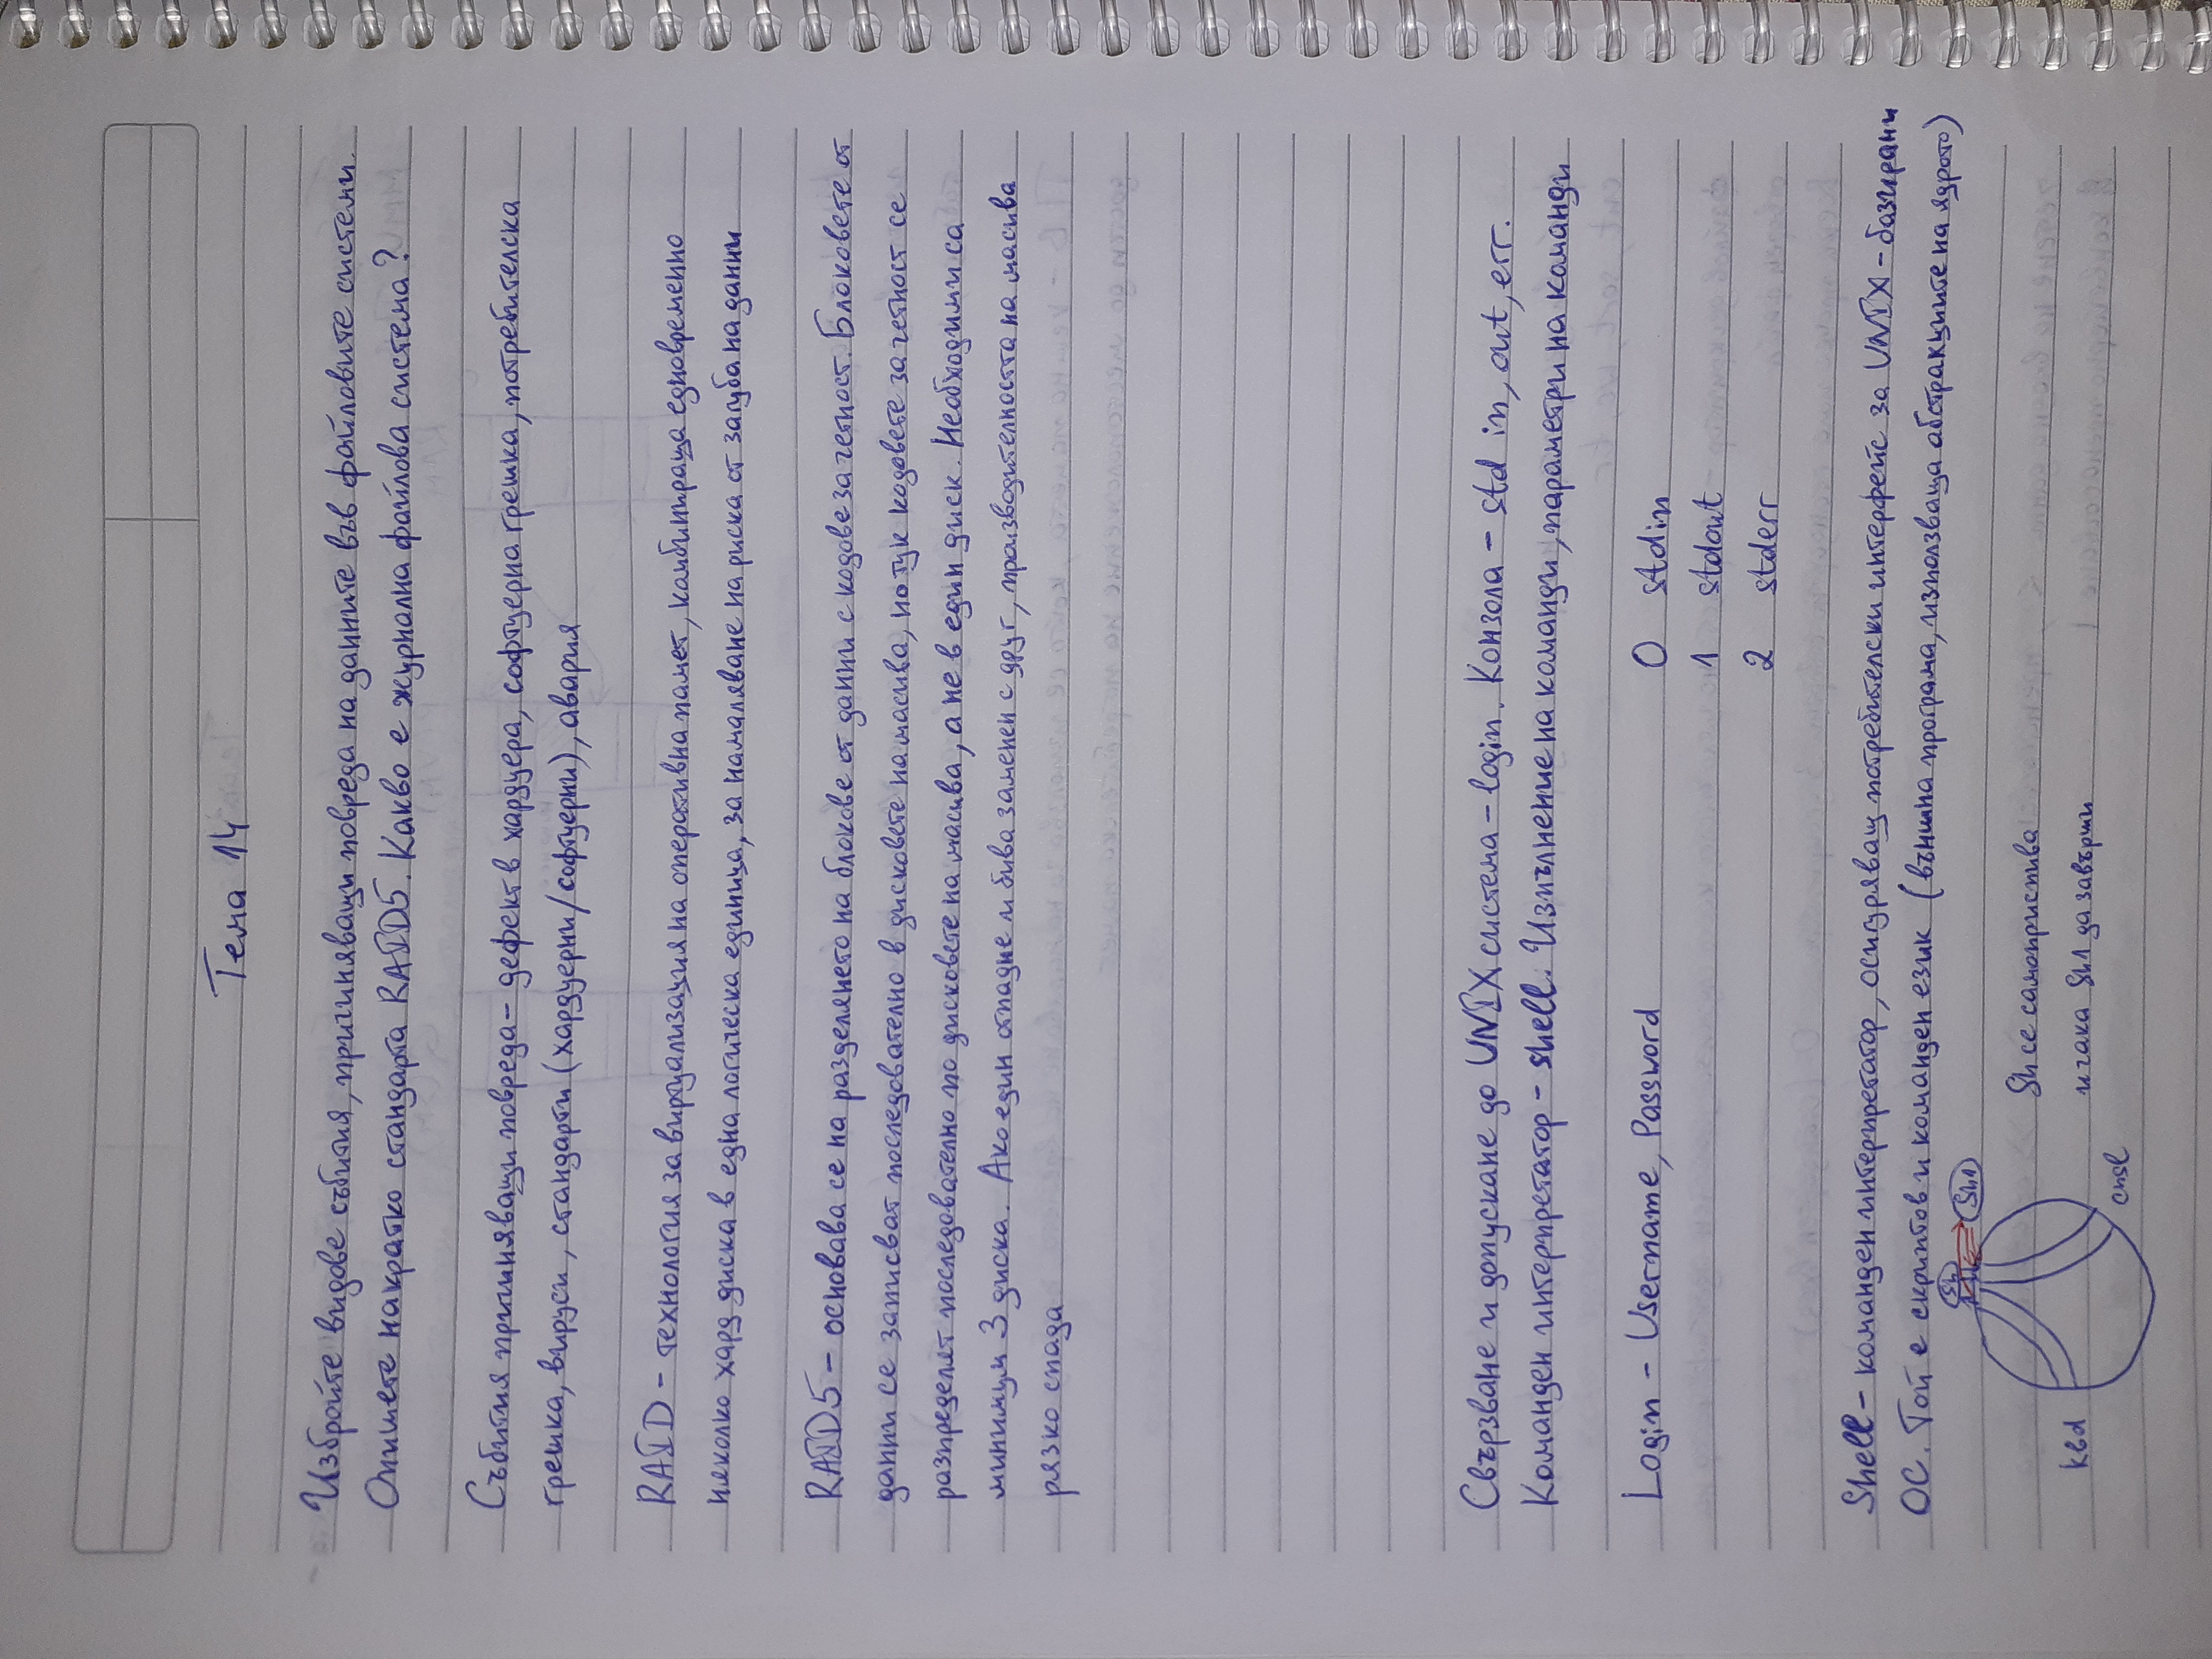 Тема 14
Избройте видове събития, причиняващи повреда на данните във файловите системи.
Опишете накратко стандарта RAID5. Какво е журнална файлова система?
Събития причиняващи повреда - дефект в хардуера, софтуерна грешка, потребителска
грешка, вируси, стандарти (хардуерни/софтуерни), авария
RAID - технология за виртуализация на оперативна памет, комбинираща едновременно
няколко хард диска в една логическа единица, за намаляване на риска от загуба на данни
RAID5 - основава се на разделянето на блокове от данни с кодове за четност. Блоковете от
данни се записват последователно в дисковете на масива, но тук кодовете за четност се
разпределят последователно по дисковете на масива, а не в един диск. Необходими са
минимум 3 диска. Ако един отпадне и бива заменен с друг, производителността на масива
рязко спада
Свързване и допускане до UNIX система - login. Конзола - std in, out, err.
Команден интерпретатор - shell. Изпълнение на команди, параметри на команди
Login - Username, Password
0 stdin
1 stdout
2 stderr
Shell - команден интерпретатор, осигуряващ потребителски интерфейс за UNIX - базирани
ОС. Той е скриптов и команден език (външна програма, използваща абстракциите на ядрото)
Sh
Sh1
Sh се самоприспива
и чака Sh1 да завърши
kbd
cnsl